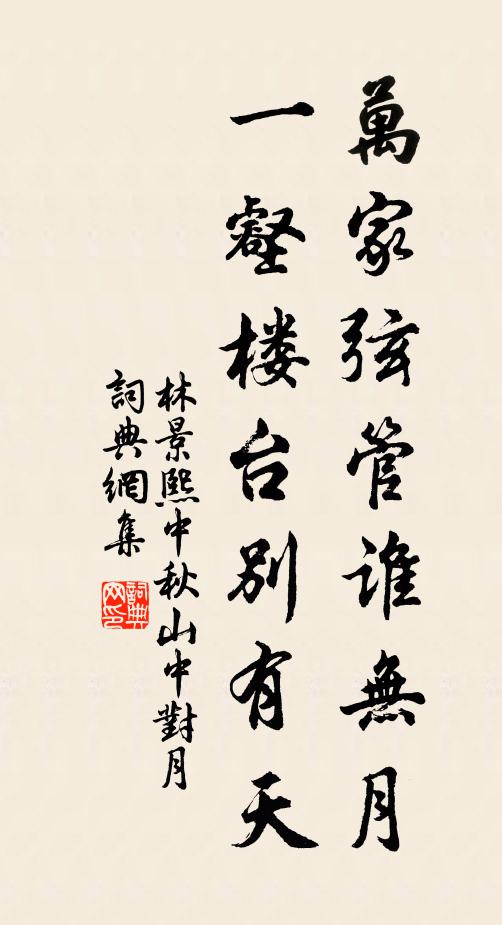 萬家弦管誰無月
一壑楼台别有天
林景熙中秋山中對月
詞典網集
詞典网印